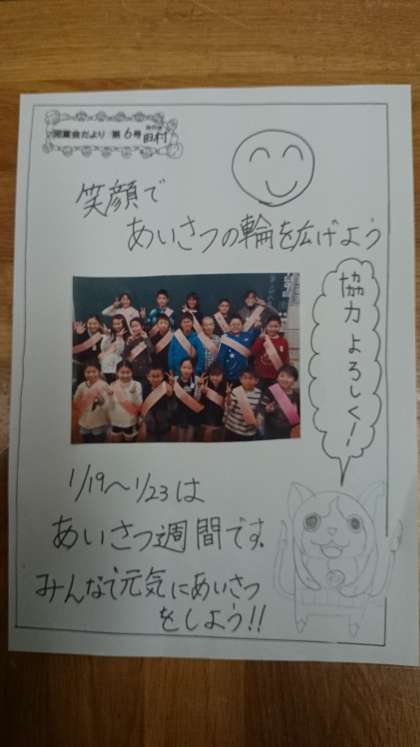 児童会だより 第6号 発行者 田村
笑顔で
あいさつの輪を広げよう
協力よろしく!
1/19〜1/23は
あいさつ週間です。
みんなで元気にあいさつ
をしよう!!